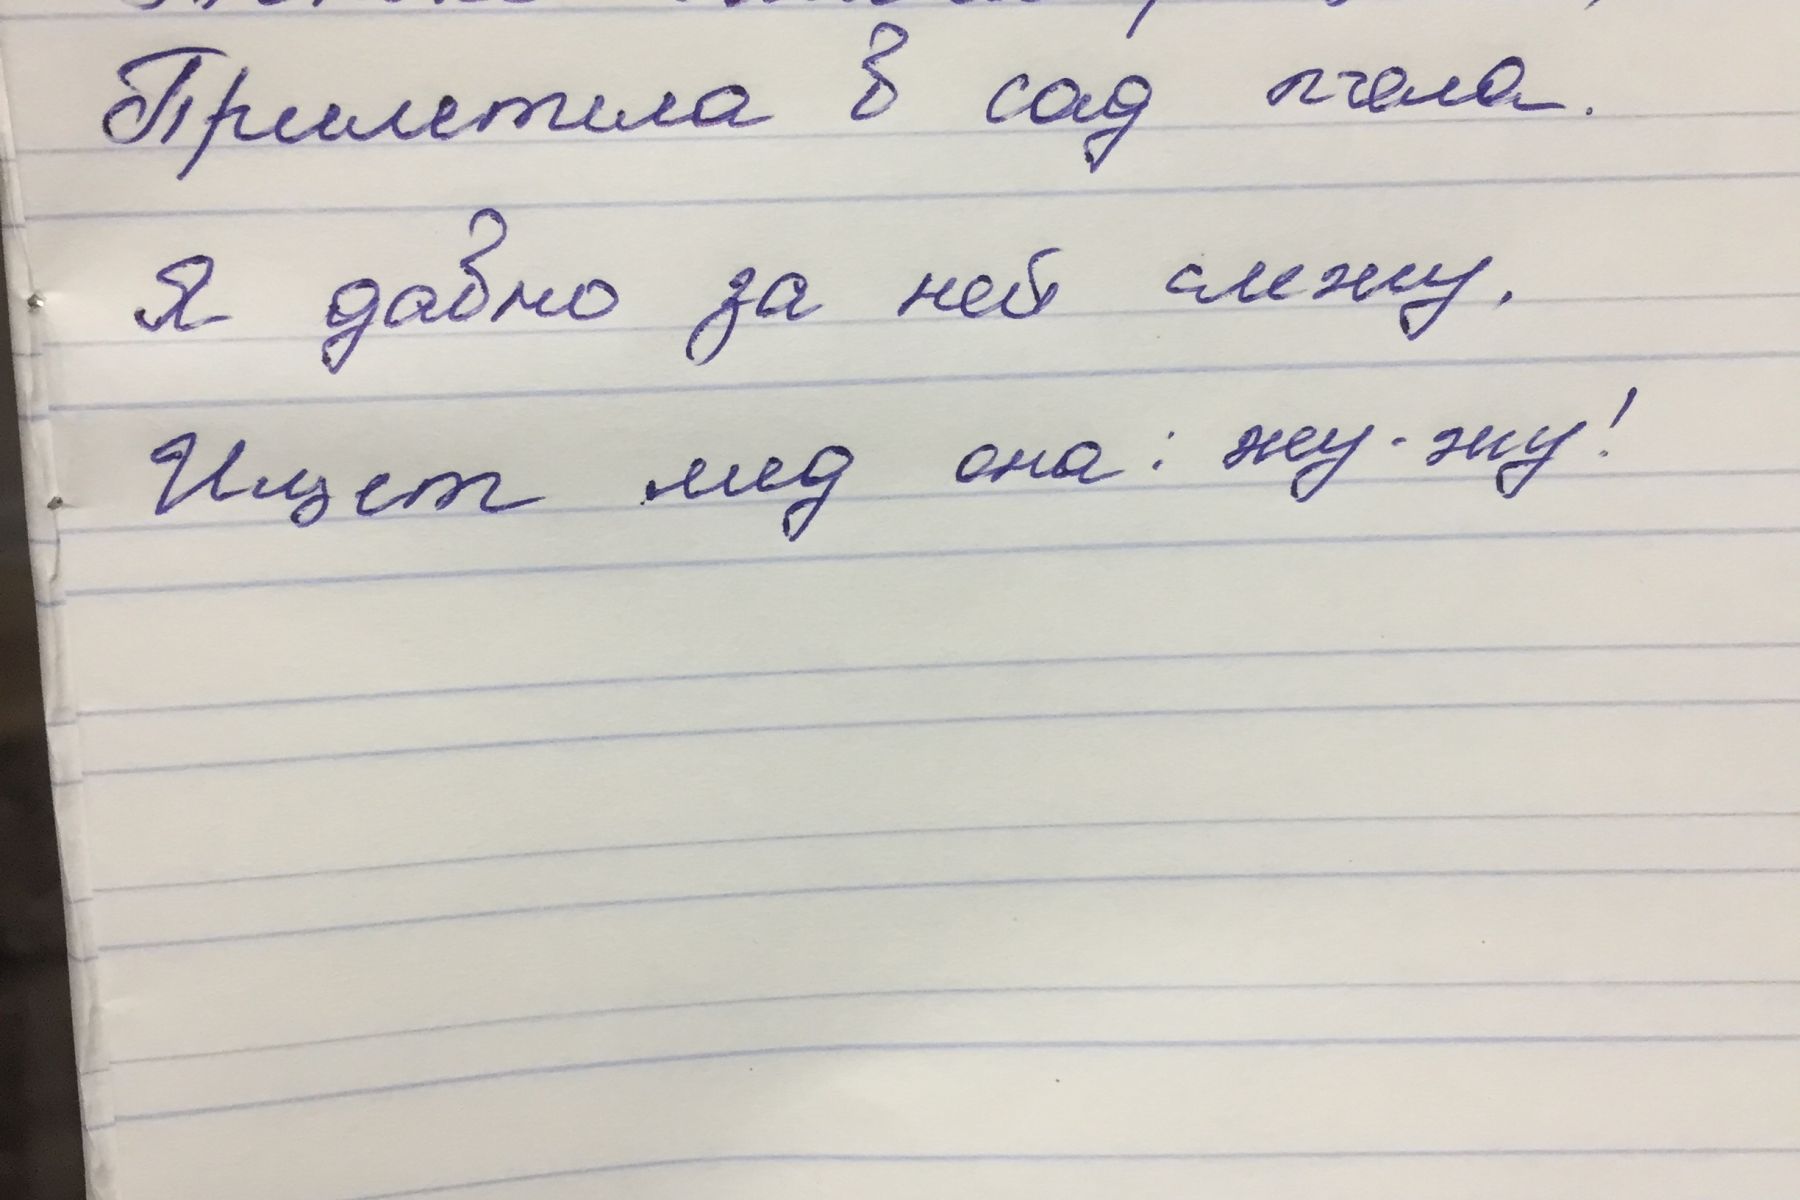 Прилетела в сад пчела.
Я давно за ней слежу.
Ищет мёд она: жу-жу!